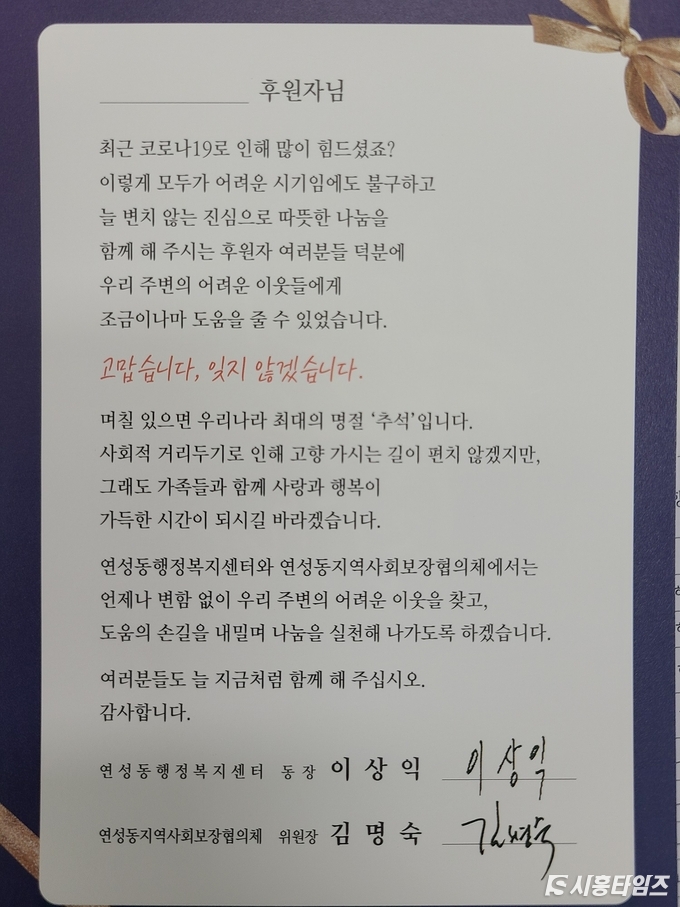 후원자님
최근 코로나19로 인해 많이 힘드셨죠?
이렇게 모두가 어려운 시기임에도 불구하고
늘 변치 않는 진심으로 따뜻한 나눔을
함께 해 주시는 후원자 여러분들 덕분에
우리 주변의 어려운 이웃들에게
조금이나마 도움을 줄 수 있었습니다.
고맙습니다, 잊지 않겠습니다.
며칠 있으면 우리나라 최대의 명절 ‘추석’입니다.
사회적 거리두기로 인해 고향 가시는 길이 편치 않겠지만,
그래도 가족들과 함께 사랑과 행복이
가득한 시간이 되시길 바라겠습니다.
연성동행정복지센터와 연성동지역사회보장협의체에서는
언제나 변함 없이 우리 주변의 어려운 이웃을 찾고,
도움의 손길을 내밀며 나눔을 실천해 나가도록 하겠습니다.
여러분들도 늘 지금처럼 함께 해 주십시오.
감사합니다.
연성동행정복지센터 동장 이상익 이상익
연성동지역사회보장협의체 위원장 김명숙 김명숙
시흥타임즈